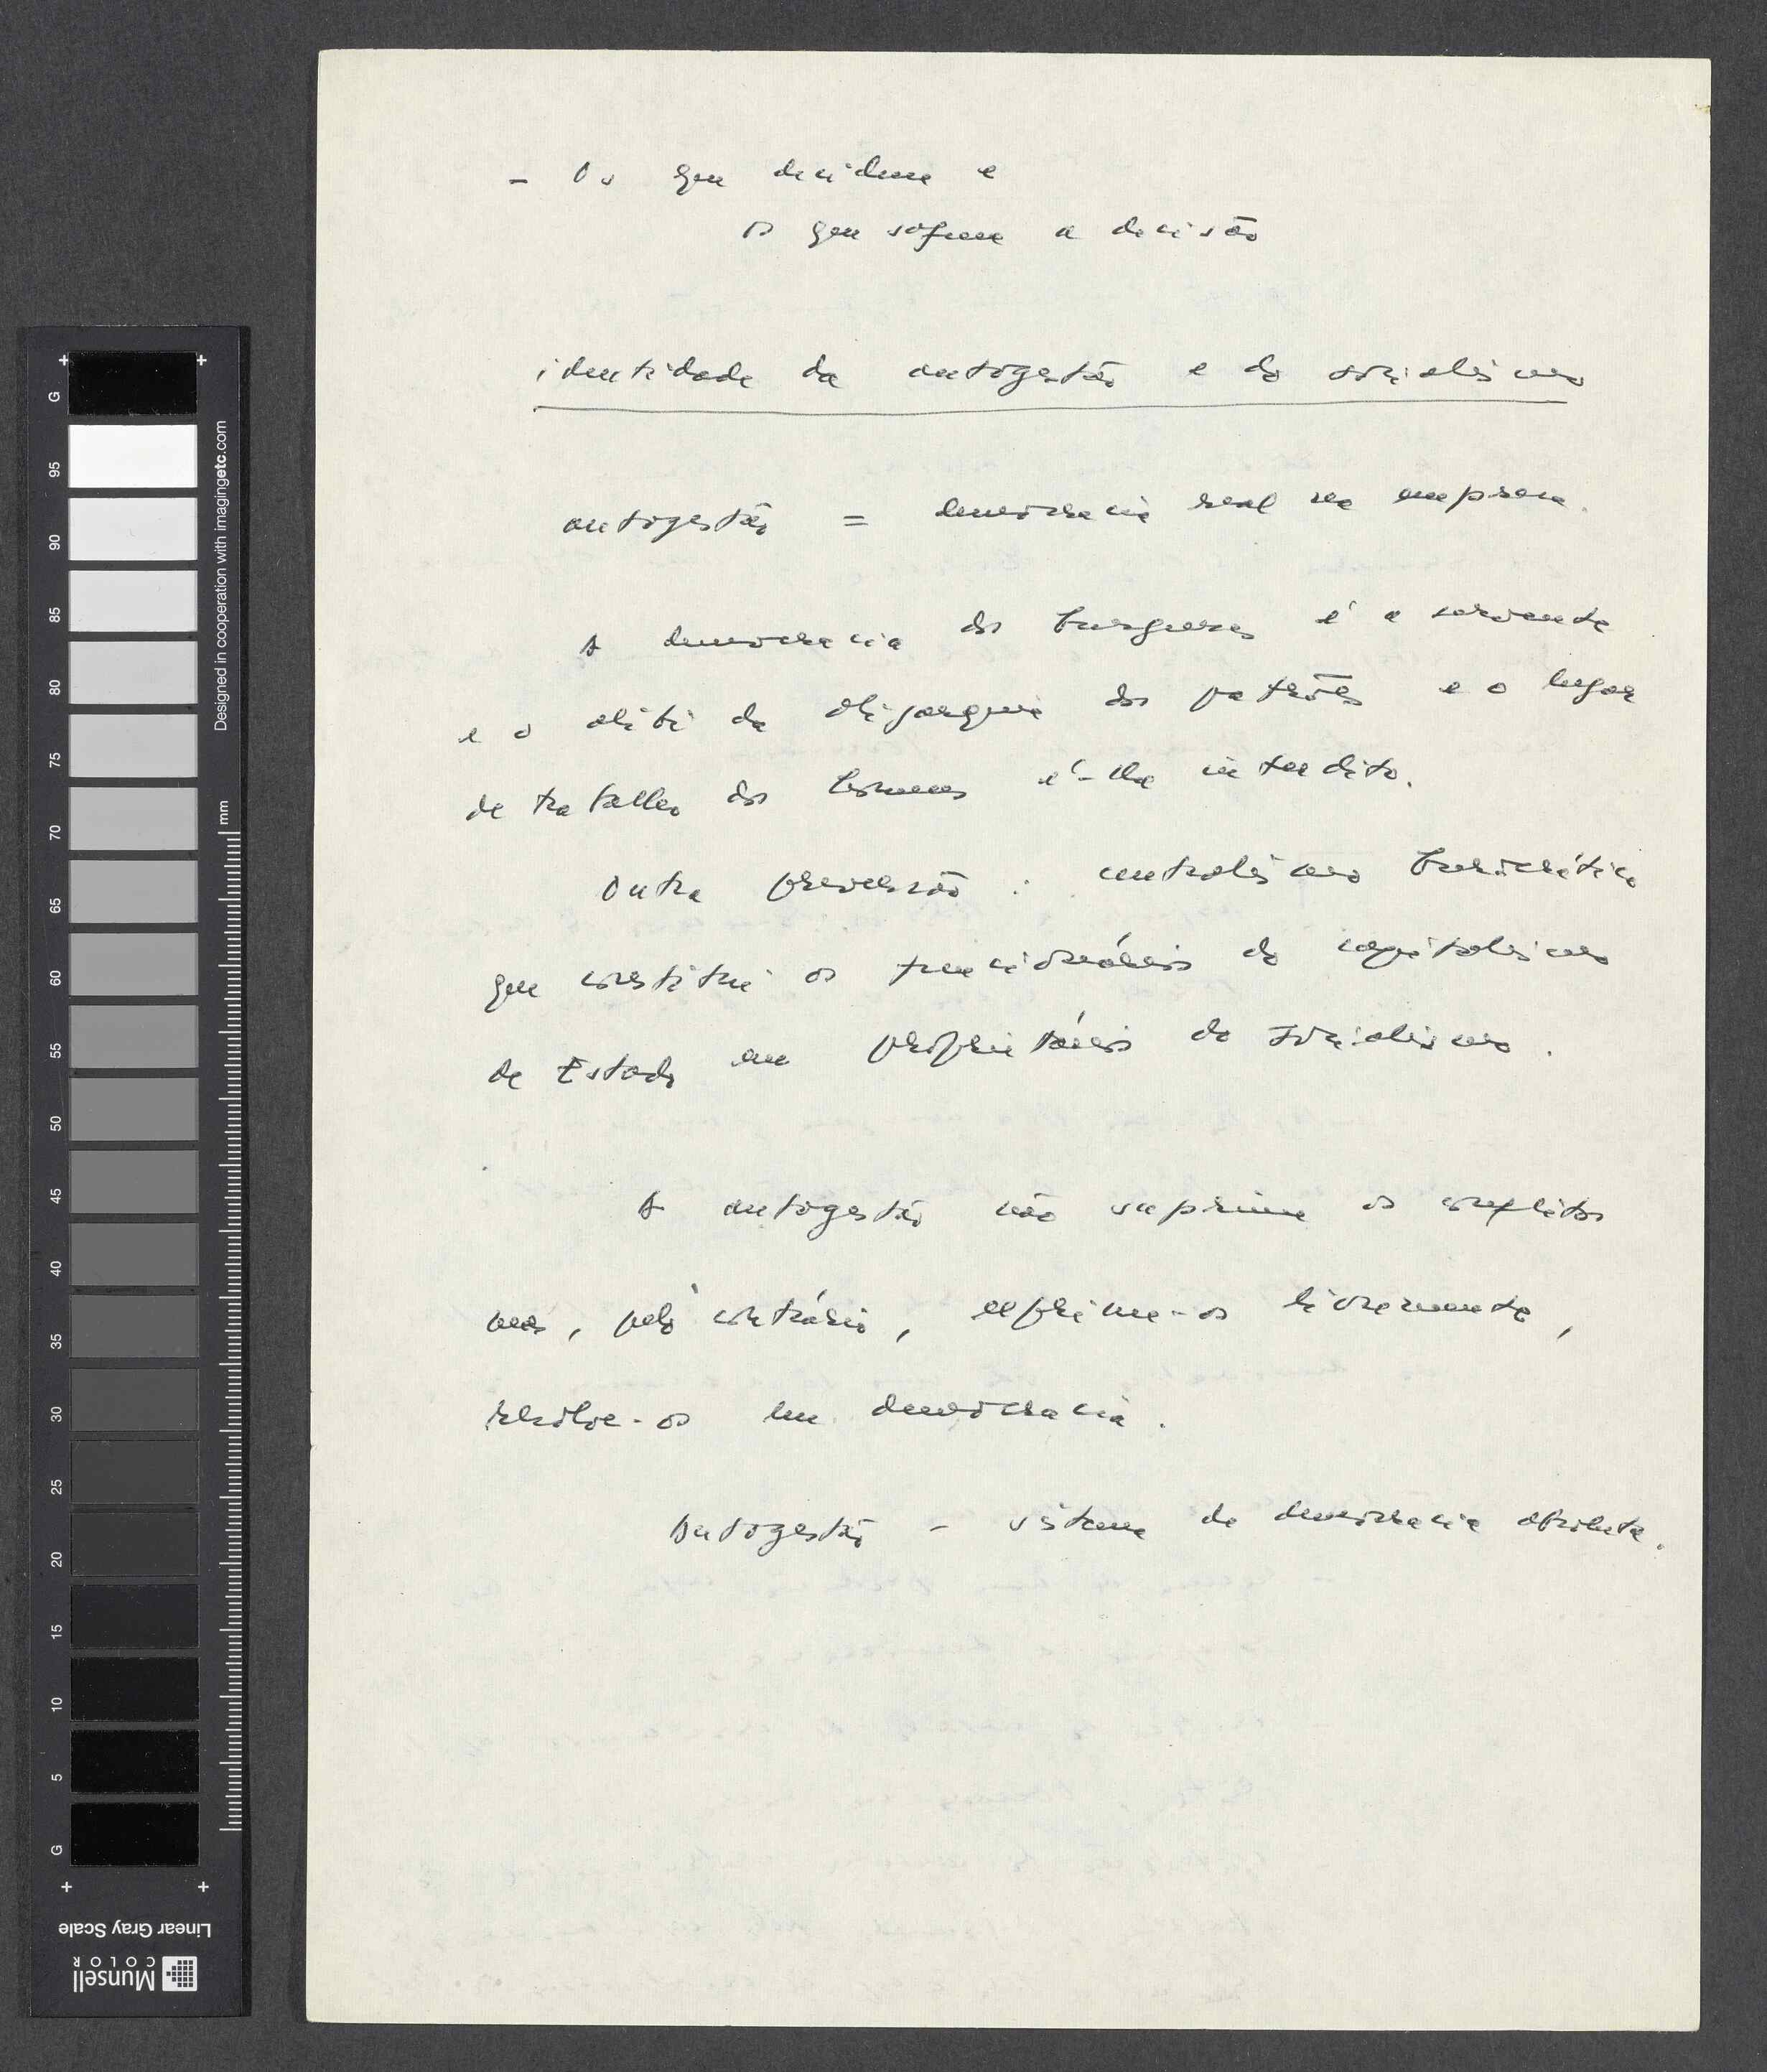 - Os que decidem e
os que sofrem a decisão
identidade da autogestão e do socialismo
autogestão = democracia real na empresa.
A democracia dos burgueses é a servente
e o alibi da oligarquia dos patrões e o lugar
de trabalho dos homens é-lhe interdito.
Outra perversão : centralismo burocrático
que constitui os funcionários do capitalismo
de Estado em proprietários do socialismo.
A autogestão não suprime os conflitos
mas, pelo contrário, exprime-os livremente,
resolve-os em democracia.
Autogestão - sistema de democracia absoluta.
G
95
90
85
80
75
70
65
60
55
50
45
40
35
30
25
20
15
10
5
G
mm
Designed in cooperation with imagingetc.com
Linear Gray Scale
Munsell
COLOR